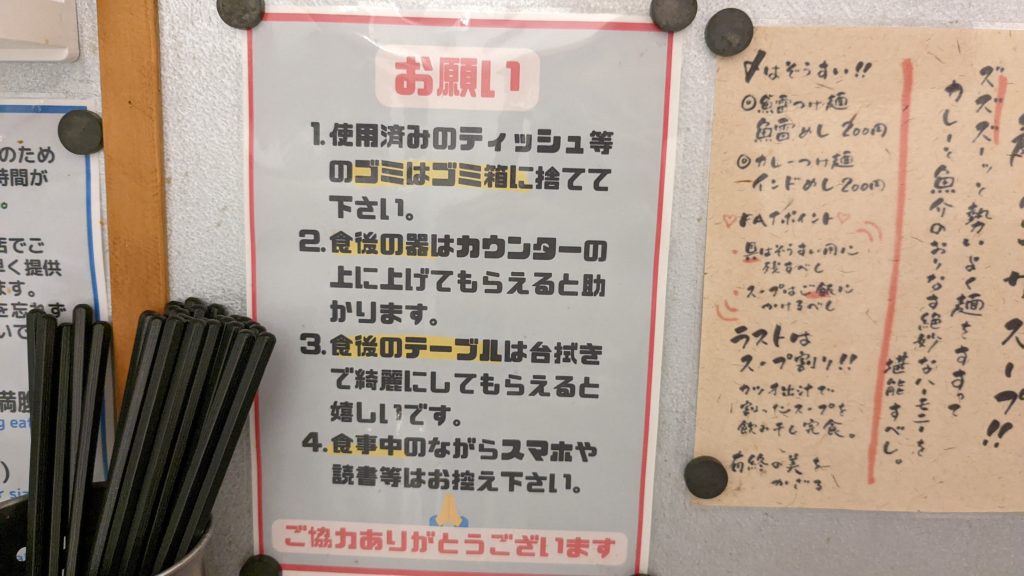 のため
時間が
。
店でご
早く提供
ます。
を忘れず
いて
満腹
)
お願い
1. 使用済みのティッシュ等
のゴミはゴミ箱に捨てて
下さい。
2. 食後の器はカウンターの
上に上げてもらえると助
かります。
3. 食後のテーブルは台拭き
で綺麗にしてもらえると
嬉しいです。
4. 食事中のながらスマホや
読書等はお控え下さい。
🙏
ご協力ありがとうございます
スープ!!
ズズズーッと勢いよく麺をすすって
カレーと魚介のおりなす絶妙なハーモニーを
堪能すべし。
〆はぞうすい!!
◎魚雷つけ麺
魚雷めし 200円
◎カレーつけ麺
インドめし 200円
♡FAポイント♡
・具はぞうすい用に
残すべし
・スープはご飯に
かけるべし
ラストは
スープ割り!!
カツオ出汁で
割ったスープを
飲み干し完食。
有終の美を
かざる